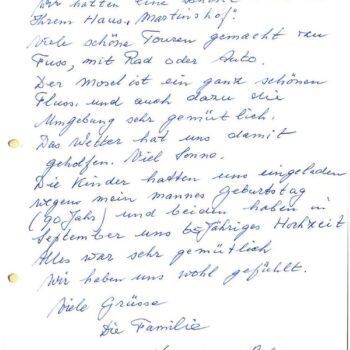 Wir hatten eine schöne
Ihrem Haus „Martinshof".
Viele schöne Touren gemacht von
Fuss, mit Rad oder Auto.
Der Mosel ist ein ganz schönen
Fluss. und auch dazu die
Umgebung sehr gemütlich.
Das Wetter hat uns damit
geholfen. Viel Sonne.
Die Kinder hatten uns eingeladen
wegens mein mannes geburtstag
(90 Jahr) und beiden haben in
September uns 65 jähriges Hochzeit
Alles war sehr gemütlich
Wir haben uns wohl gefühlt.
Viele Grüsse
Die Familie